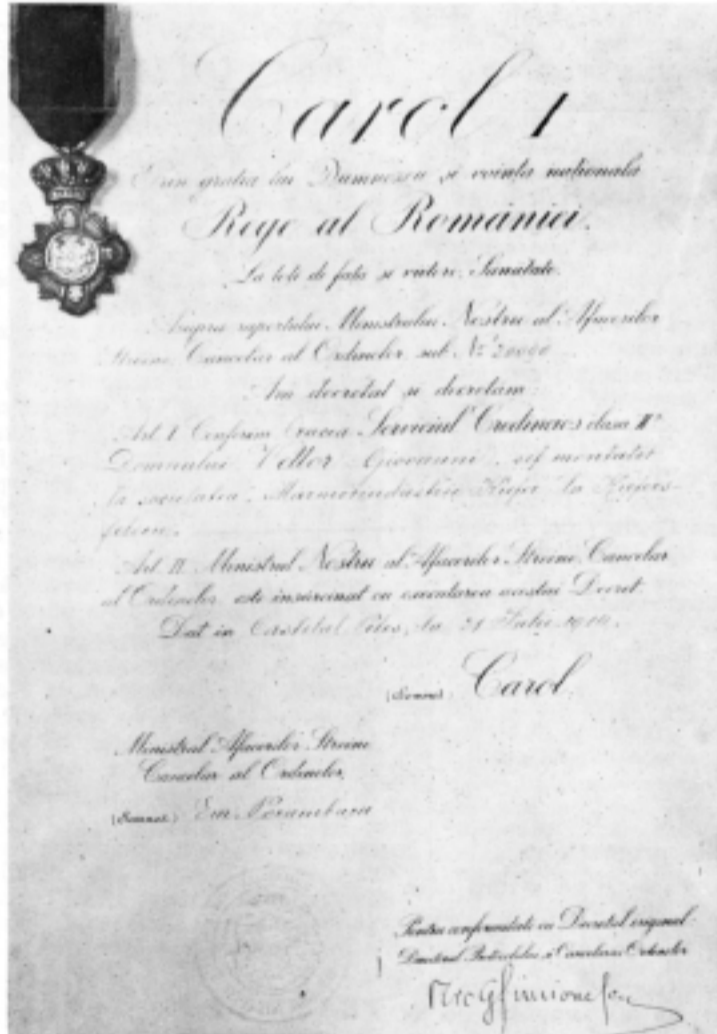 Carol I
Prin gratia lui Dumnezeu și voința națională
Rege al României.
La toti de fata si viitori, Sanatate.
Asupra raportului Ministrului Nostru al Afacerilor
Streine, Cancelar al Ordinelor sub No
Am decretat si decretam:
Art. I Conferim Crucea Serviciul Credincios clasa II
Domnului Vellor Giovanni, sef montator
la societatea Kiefer la Kiefers-
felden.
Art. II. Ministrul Nostru al Afacerilor Streine, Cancelar
al Ordinelor este însărcinat cu executarea acestui Decret
Dat in Castelul Peles, la 21 Iulie 1910.
(Semnat) Carol
Ministrul Afacerilor Streine
Cancelar al Ordinelor,
(Semnat) Em Porumbaru
Pentru conformitate cu Decretul original
Directorul Protocolului si Cancelariei Ordinelor